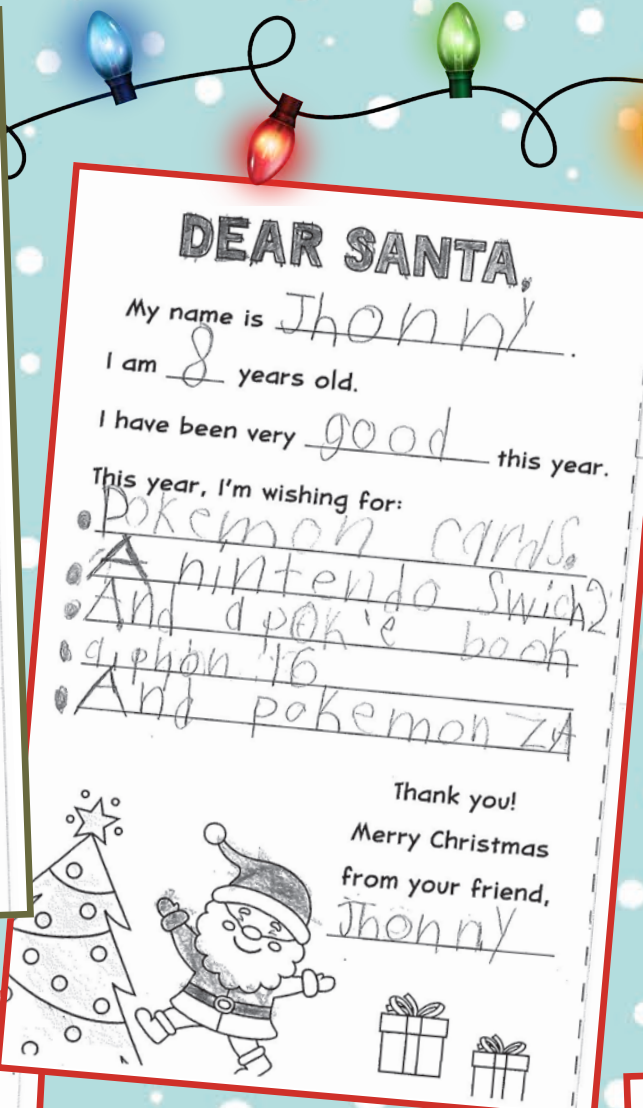 DEAR SANTA,
My name is Jhonny.
I am 8 years old.
I have been very good this year.
This year, I'm wishing for:
• Pokemon cards.
• A nintendo Swich2
• And a pok'e book
• a iphon 16
• And pokemon ZA
Thank you!
Merry Christmas
from your friend,
Jhonny